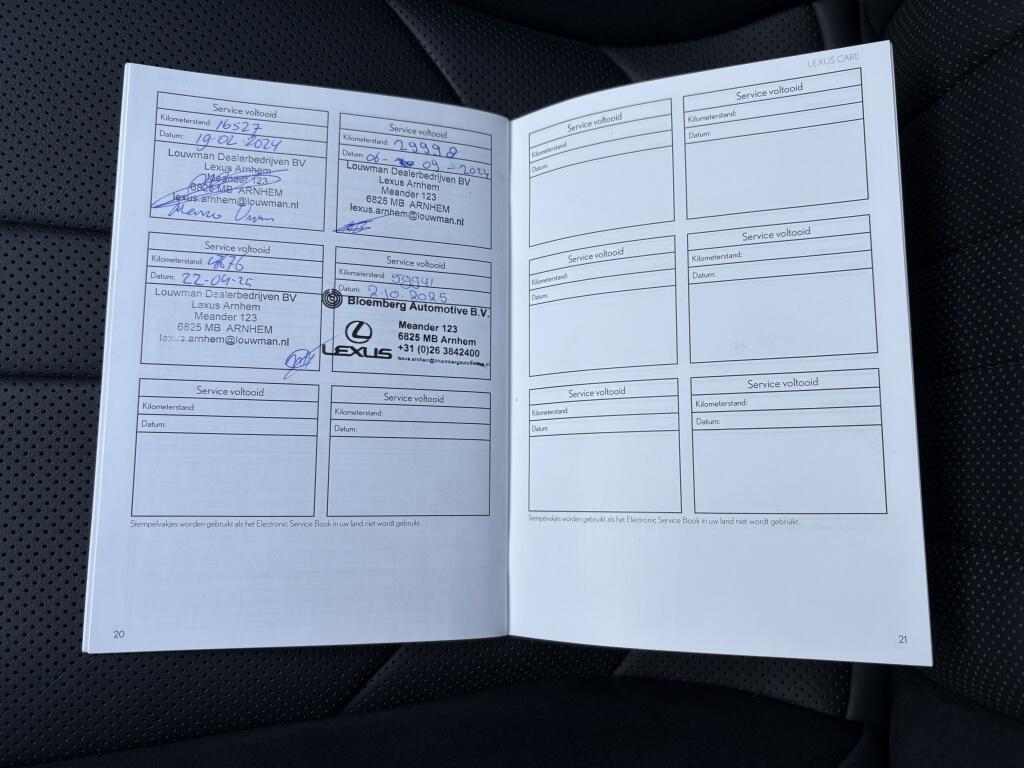 LEXUS CARE
Service voltooid
Kilometerstand: 16527
Datum: 19-02-2024
Louwman Dealerbedrijven BV
Lexus Arnhem
Meander 123
6825 MB ARNHEM
lexus.arnhem@louwman.nl
Service voltooid
Kilometerstand: 29998
Datum: 06- 09-2024
Louwman Dealerbedrijven BV
Lexus Arnhem
Meander 123
6825 MB ARNHEM
lexus.arnhem@louwman.nl
Service voltooid
Kilometerstand:
Datum: 22-04-25
Louwman Dealerbedrijven BV
Lexus Arnhem
Meander 123
6825 MB ARNHEM
lexus.arnhem@louwman.nl
Service voltooid
Kilometerstand:
Datum: 2.10.2025
Bloemberg Automotive B.V.
LEXUS
Meander 123
6825 MB Arnhem
+31 (0)26 3842400
lexus.arnhem@bloembergautomotive.nl
Service voltooid
Kilometerstand:
Datum:
Service voltooid
Kilometerstand:
Datum:
Stempelvakjes worden gebruikt als het Electronic Service Book in uw land niet wordt gebruikt.
20
Service voltooid
Kilometerstand:
Datum:
Service voltooid
Kilometerstand:
Datum:
Service voltooid
Kilometerstand:
Datum:
Service voltooid
Kilometerstand:
Datum:
Service voltooid
Kilometerstand:
Datum:
Service voltooid
Kilometerstand:
Datum:
Stempelvakjes worden gebruikt als het Electronic Service Book in uw land niet wordt gebruikt.
21